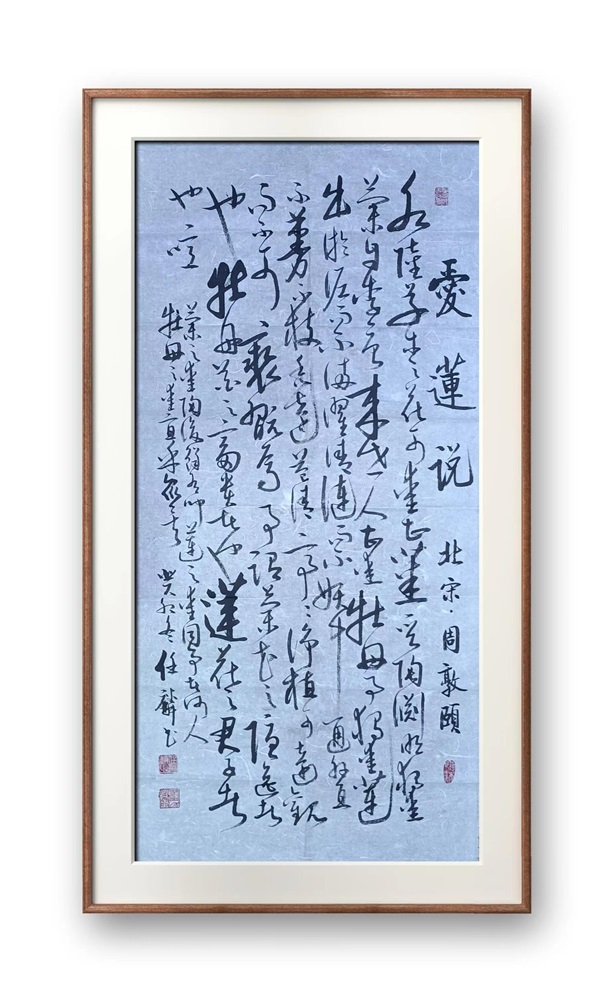 愛蓮说 北宋·周敦頤
水陸草木之花可愛者甚蕃晋陶渊明独愛
菊自李唐来世人甚愛牡丹予独愛蓮
出於泥而不染濯清漣而不妖中通外直
不蔓不枝香遠益清亭亭净植可遠観
而不可褻玩焉予謂菊花之隱逸者
也牡丹花之富貴者也蓮花之君子者
也噫
菊之愛陶後鮮有聞蓮之愛同予者何人
牡丹之愛宜乎衆矣 癸卯冬任麟书